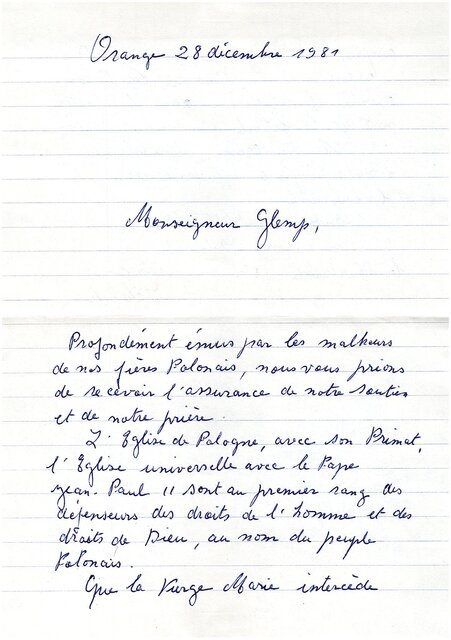 Orange 28 décembre 1981
Monseigneur Glemp,
Profondément émus par les malheurs
de nos frères Polonais, nous vous prions
de recevoir l'assurance de notre soutien
et de notre prière.
L'Eglise de Pologne, avec son Primat,
l'Eglise universelle avec le Pape
Jean-Paul II sont au premier rang des
défenseurs des droits de l'homme et des
droits de Dieu, au nom du peuple
Polonais.
Que la Vierge Marie intercède